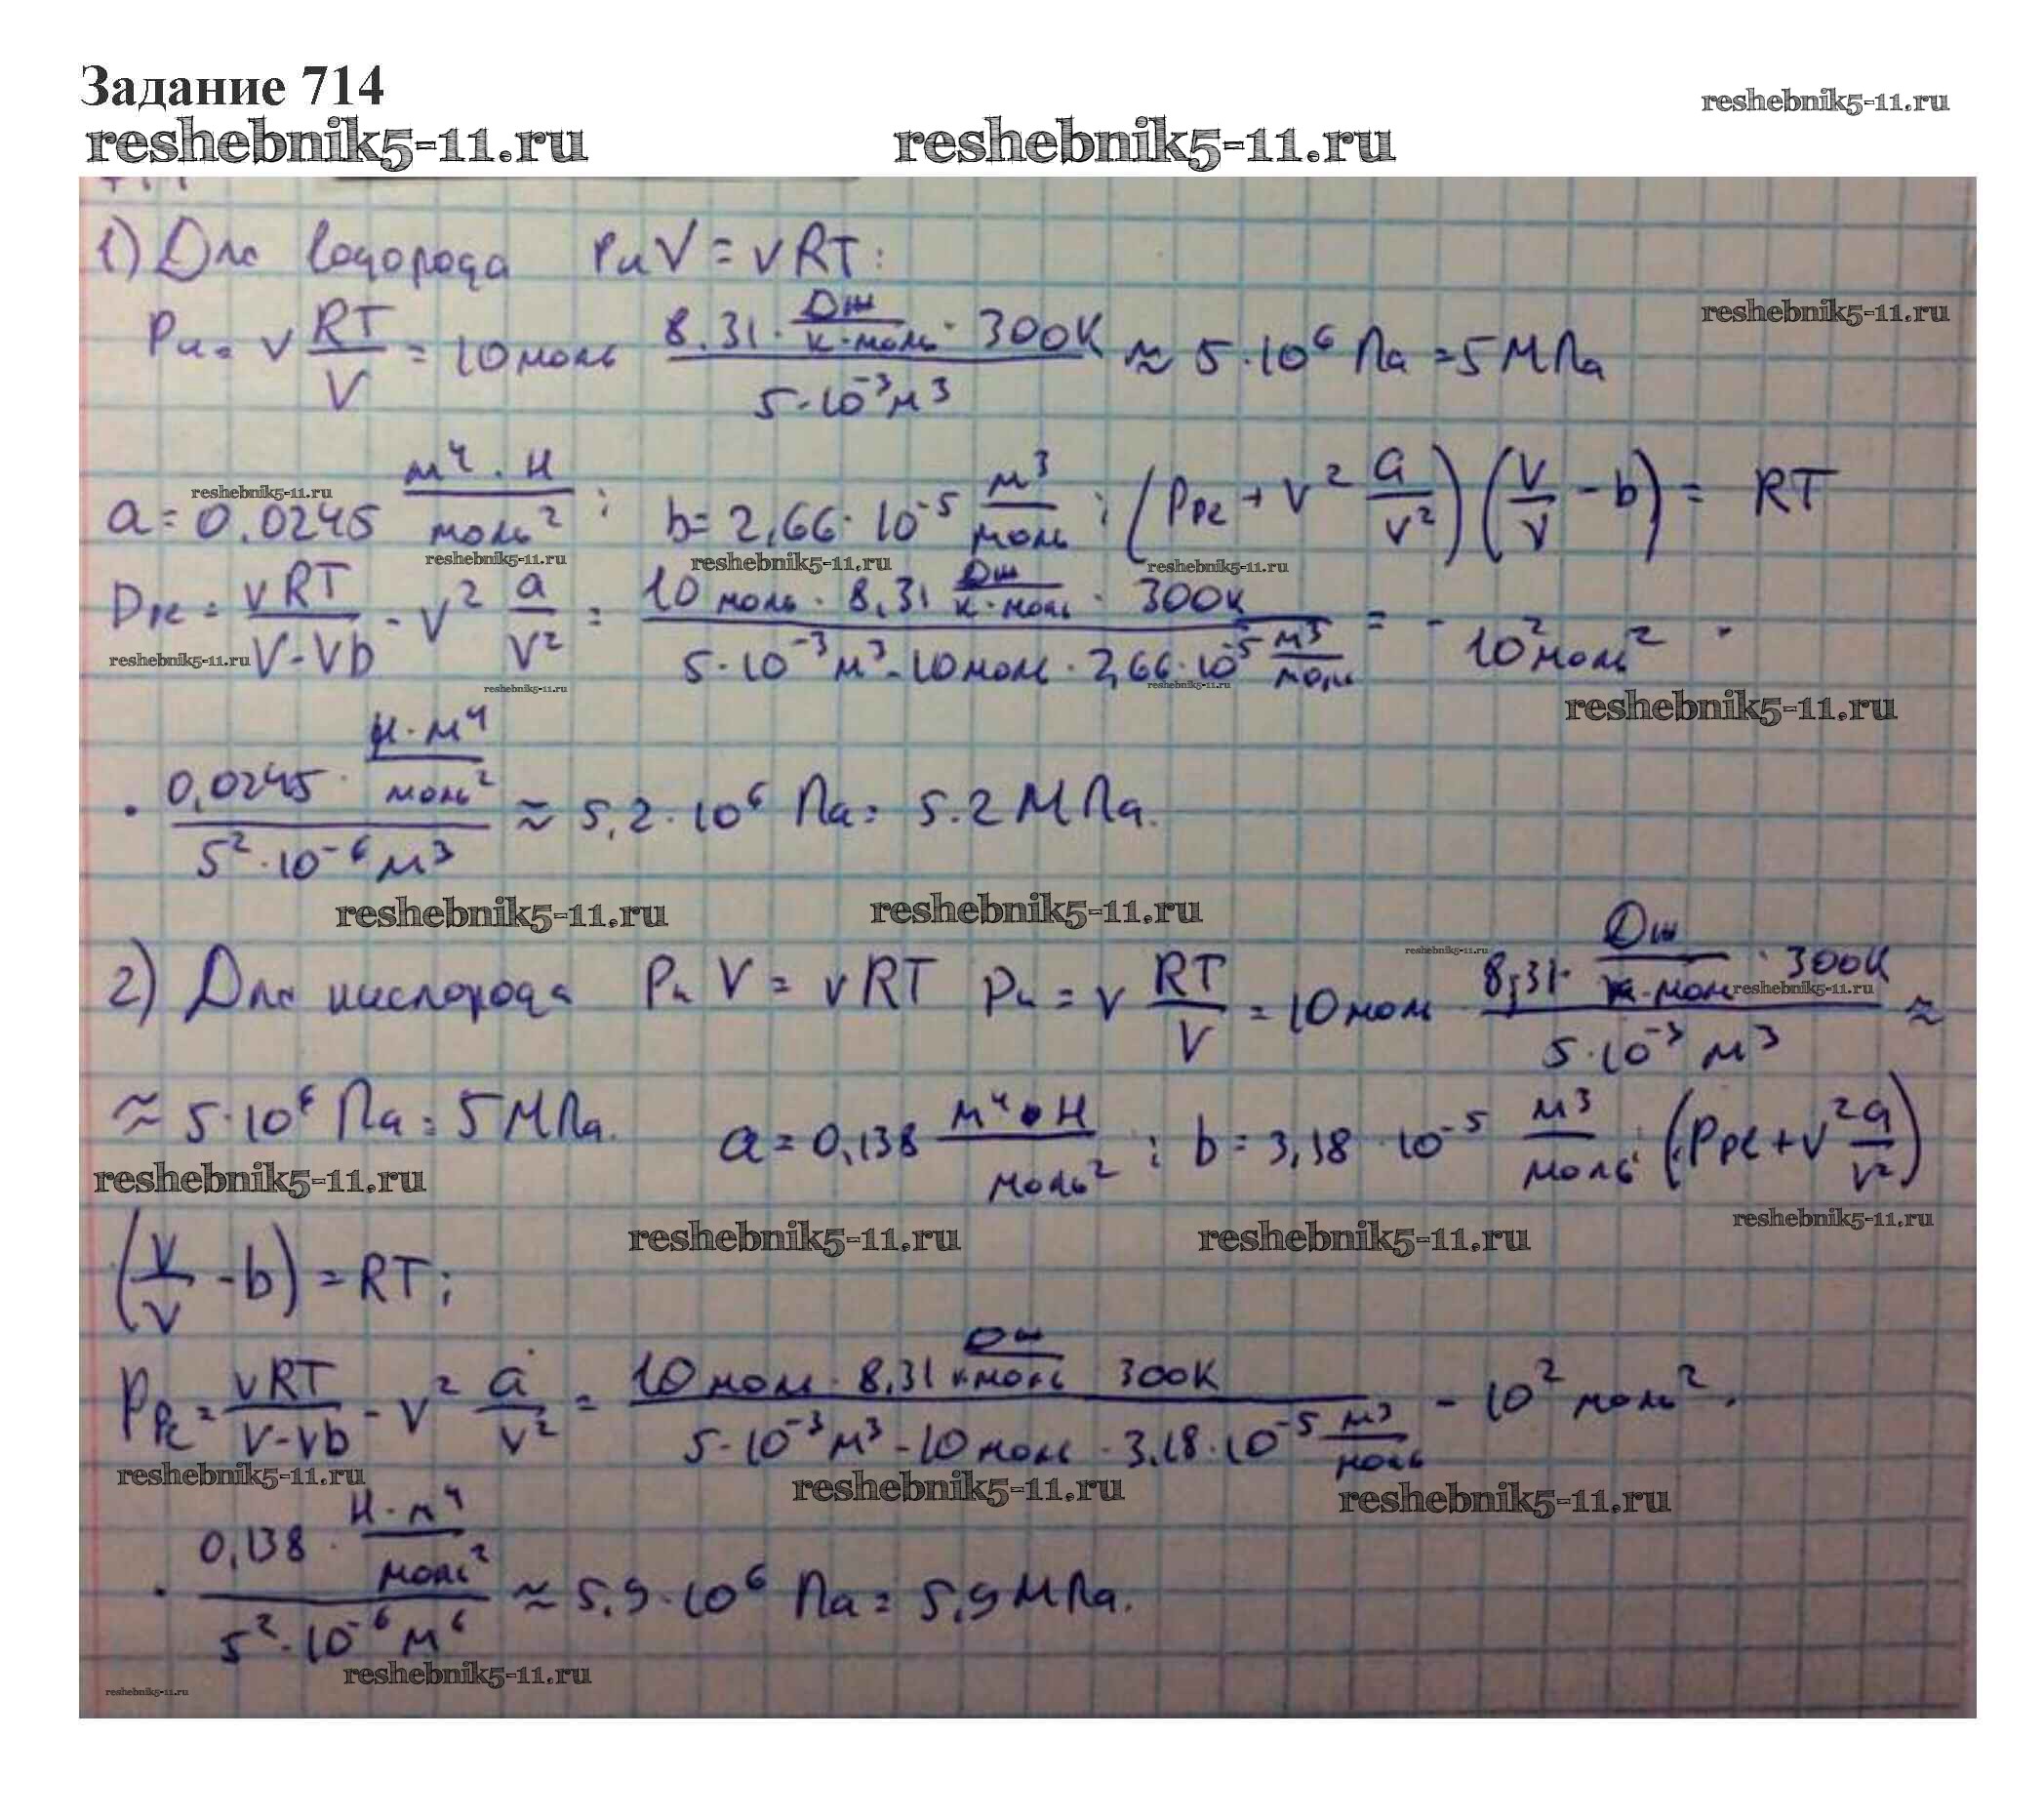 Задание 714
reshebnik5-11.ru
reshebnik5-11.ru reshebnik5-11.ru
1) Для водорода PиV = νRT:
reshebnik5-11.ru
Pи = ν RT/V = 10 моль 8,31 · Дж/К·моль · 300К / 5·10⁻³м³ ≈ 5·10⁶ Па = 5 МПа
a = 0,0245 м⁴·Н/моль² ; b = 2,66·10⁻⁵ м³/моль ; (Pре + ν² a/V²)(V/ν - b) = RT
reshebnik5-11.ru
reshebnik5-11.ru reshebnik5-11.ru reshebnik5-11.ru
Pре = νRT/V-νb - ν² a/V² = 10 моль · 8,31 Дж/К·моль · 300К / 5·10⁻³м³ - 10 моль · 2,66·10⁻⁵ м³/моль = - 10² моль² ·
reshebnik5-11.ru reshebnik5-11.ru reshebnik5-11.ru
reshebnik5-11.ru
· 0,0245 · Н·м⁴/моль² / 5²·10⁻⁶м³ ≈ 5,2·10⁶ Па = 5.2 МПа.
reshebnik5-11.ru reshebnik5-11.ru
reshebnik5-11.ru
2) Для кислорода Pи V = νRT Pи = ν RT/V = 10 моль · 8,31· Дж/К·моль · 300К / 5·10⁻³ м³ ≈
reshebnik5-11.ru
≈ 5·10⁶ Па = 5 МПа. a = 0,138 м⁴·Н/моль² ; b = 3,18·10⁻⁵ м³/моль ; (Pре + ν² a/V²)
reshebnik5-11.ru
reshebnik5-11.ru reshebnik5-11.ru reshebnik5-11.ru
(V/ν - b) = RT;
Pре = νRT/V-νb - ν² a/V² = 10 моль · 8,31 Дж/К·моль 300К / 5·10⁻³м³ - 10 моль · 3,18·10⁻⁵ м³/моль - 10² моль² ·
reshebnik5-11.ru reshebnik5-11.ru reshebnik5-11.ru
· 0,138 · Н·м⁴/моль² / 5²·10⁻⁶м⁶ ≈ 5,9·10⁶ Па = 5,9 МПа.
reshebnik5-11.ru
reshebnik5-11.ru